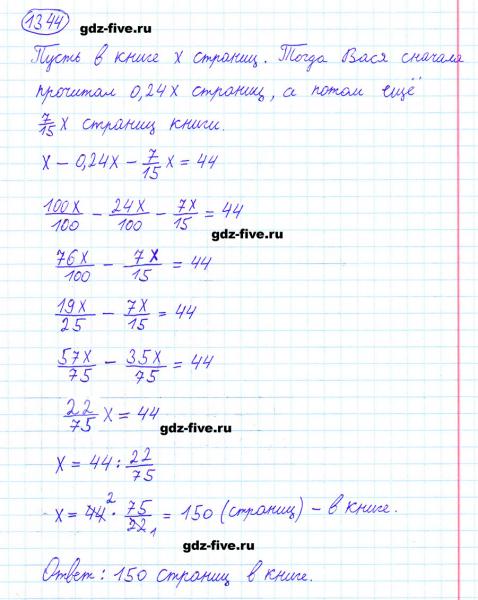 1344
gdz-five.ru
Пусть в книге х страниц. Тогда Вася сначала
прочитал 0,24х страниц, а потом ещё
7/15 х страниц книги.
х - 0,24х - 7/15 х = 44
100х/100 - 24х/100 - 7х/15 = 44
gdz-five.ru
76х/100 - 7х/15 = 44
19х/25 - 7х/15 = 44
57х/75 - 35х/75 = 44
22/75 х = 44
gdz-five.ru
х = 44 : 22/75
х = 44 2 · 75/22 1 = 150 (страниц) - в книге.
gdz-five.ru
Ответ: 150 страниц в книге.